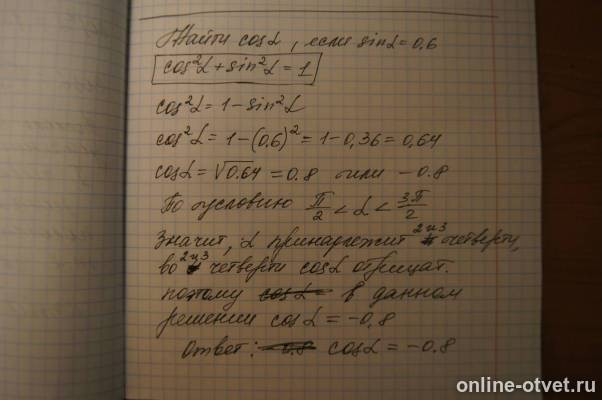 Найти cosα, если sinα=0,6
cos²α+sin²α=1
cos²α=1-sin²α
cos²α=1-(0,6)²=1-0,36=0,64
cosα=√0.64=0.8 или -0.8
По условию π/2<α<3π/2
Значит, α принадлежит 2 и 3 четверти,
во 2 и 3 четверти cosα отрицат.
поэтому cosα= в данном
решении cosα=-0,8
Ответ: -0.8 cosα=-0.8
online-otvet.ru